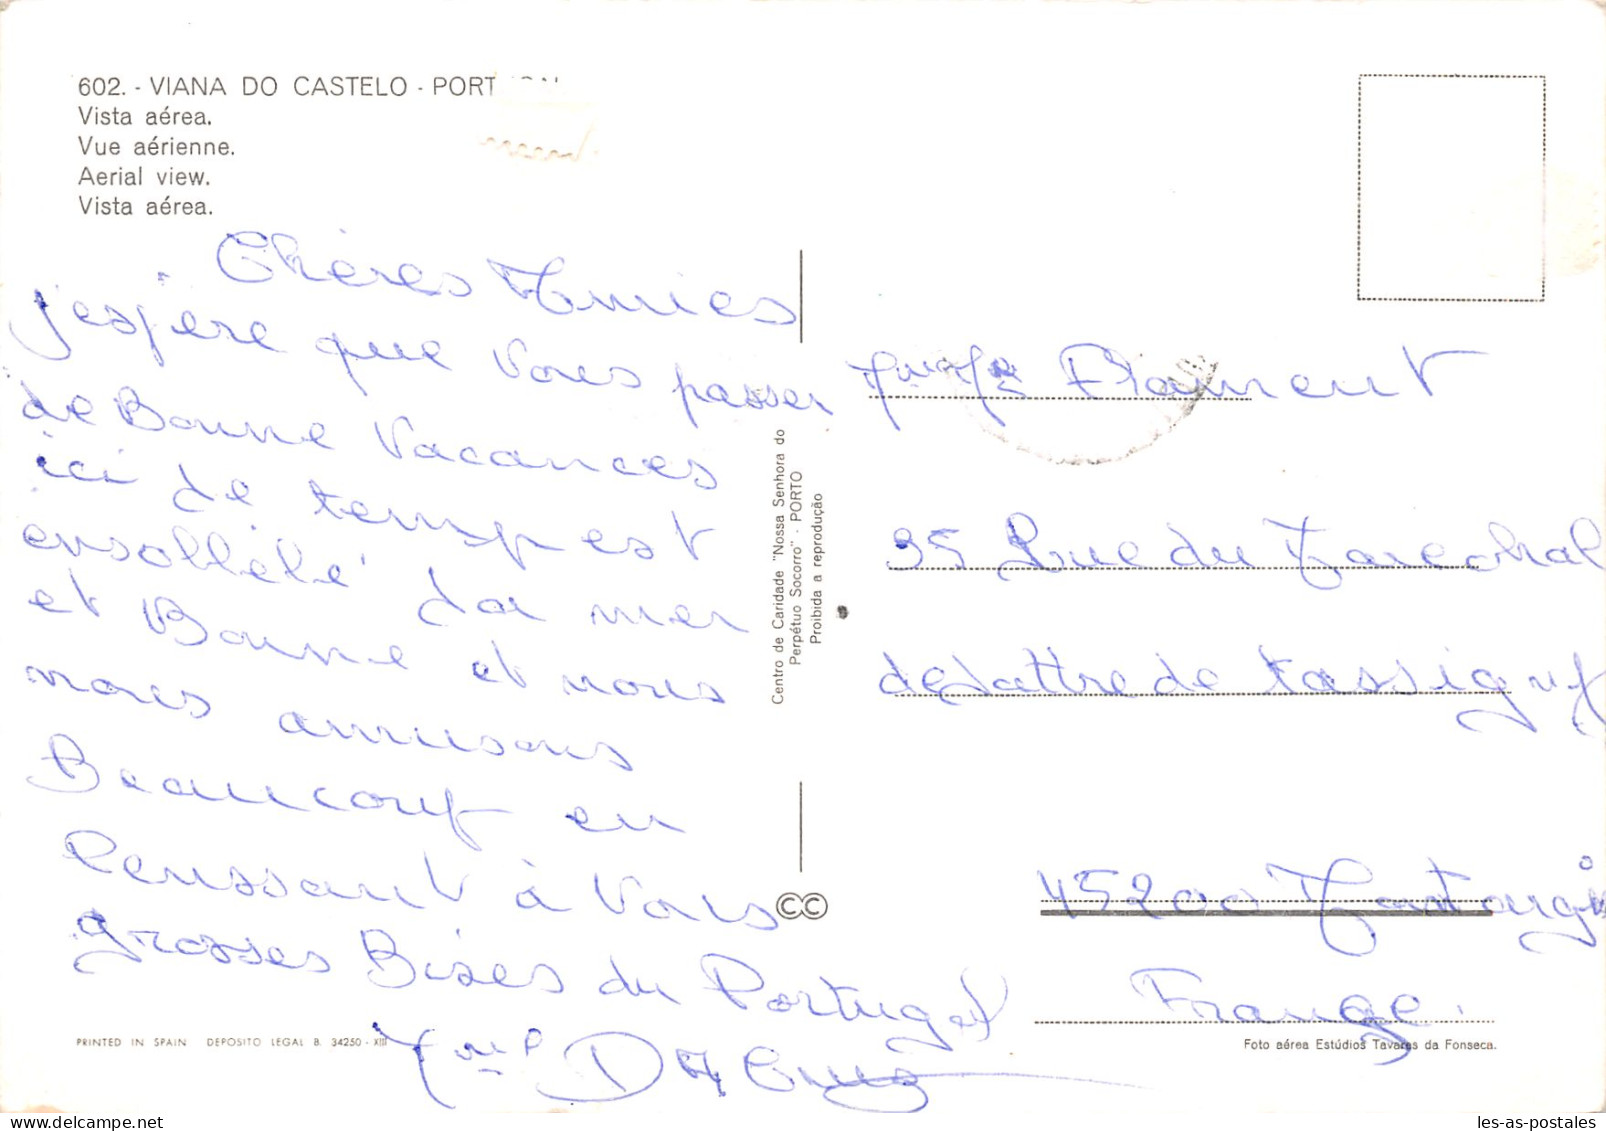 602. - VIANA DO CASTELO - PORT
Vista aérea.
Vue aérienne.
Aerial view.
Vista aérea.
Chères Amies
j'espère que vous passer
de Bonne vacances
ici de temps est
ensolleié la mer
et Bonne et nous
nous amusons
Beaucoup en
Penssant à vous
grosses Bises du Portugal
Centro de Caridade "Nossa Senhora do
Perpétuo Socorro" - PORTO
Proibida a reprodução
CC
Flament
35 Rue du Marechal
de Lattre de Tassigny
45200 Montargis
France.
PRINTED IN SPAIN DEPOSITO LEGAL B. 34250 - XIII
Foto aérea Estúdios Tavares da Fonseca.
les-as-postales